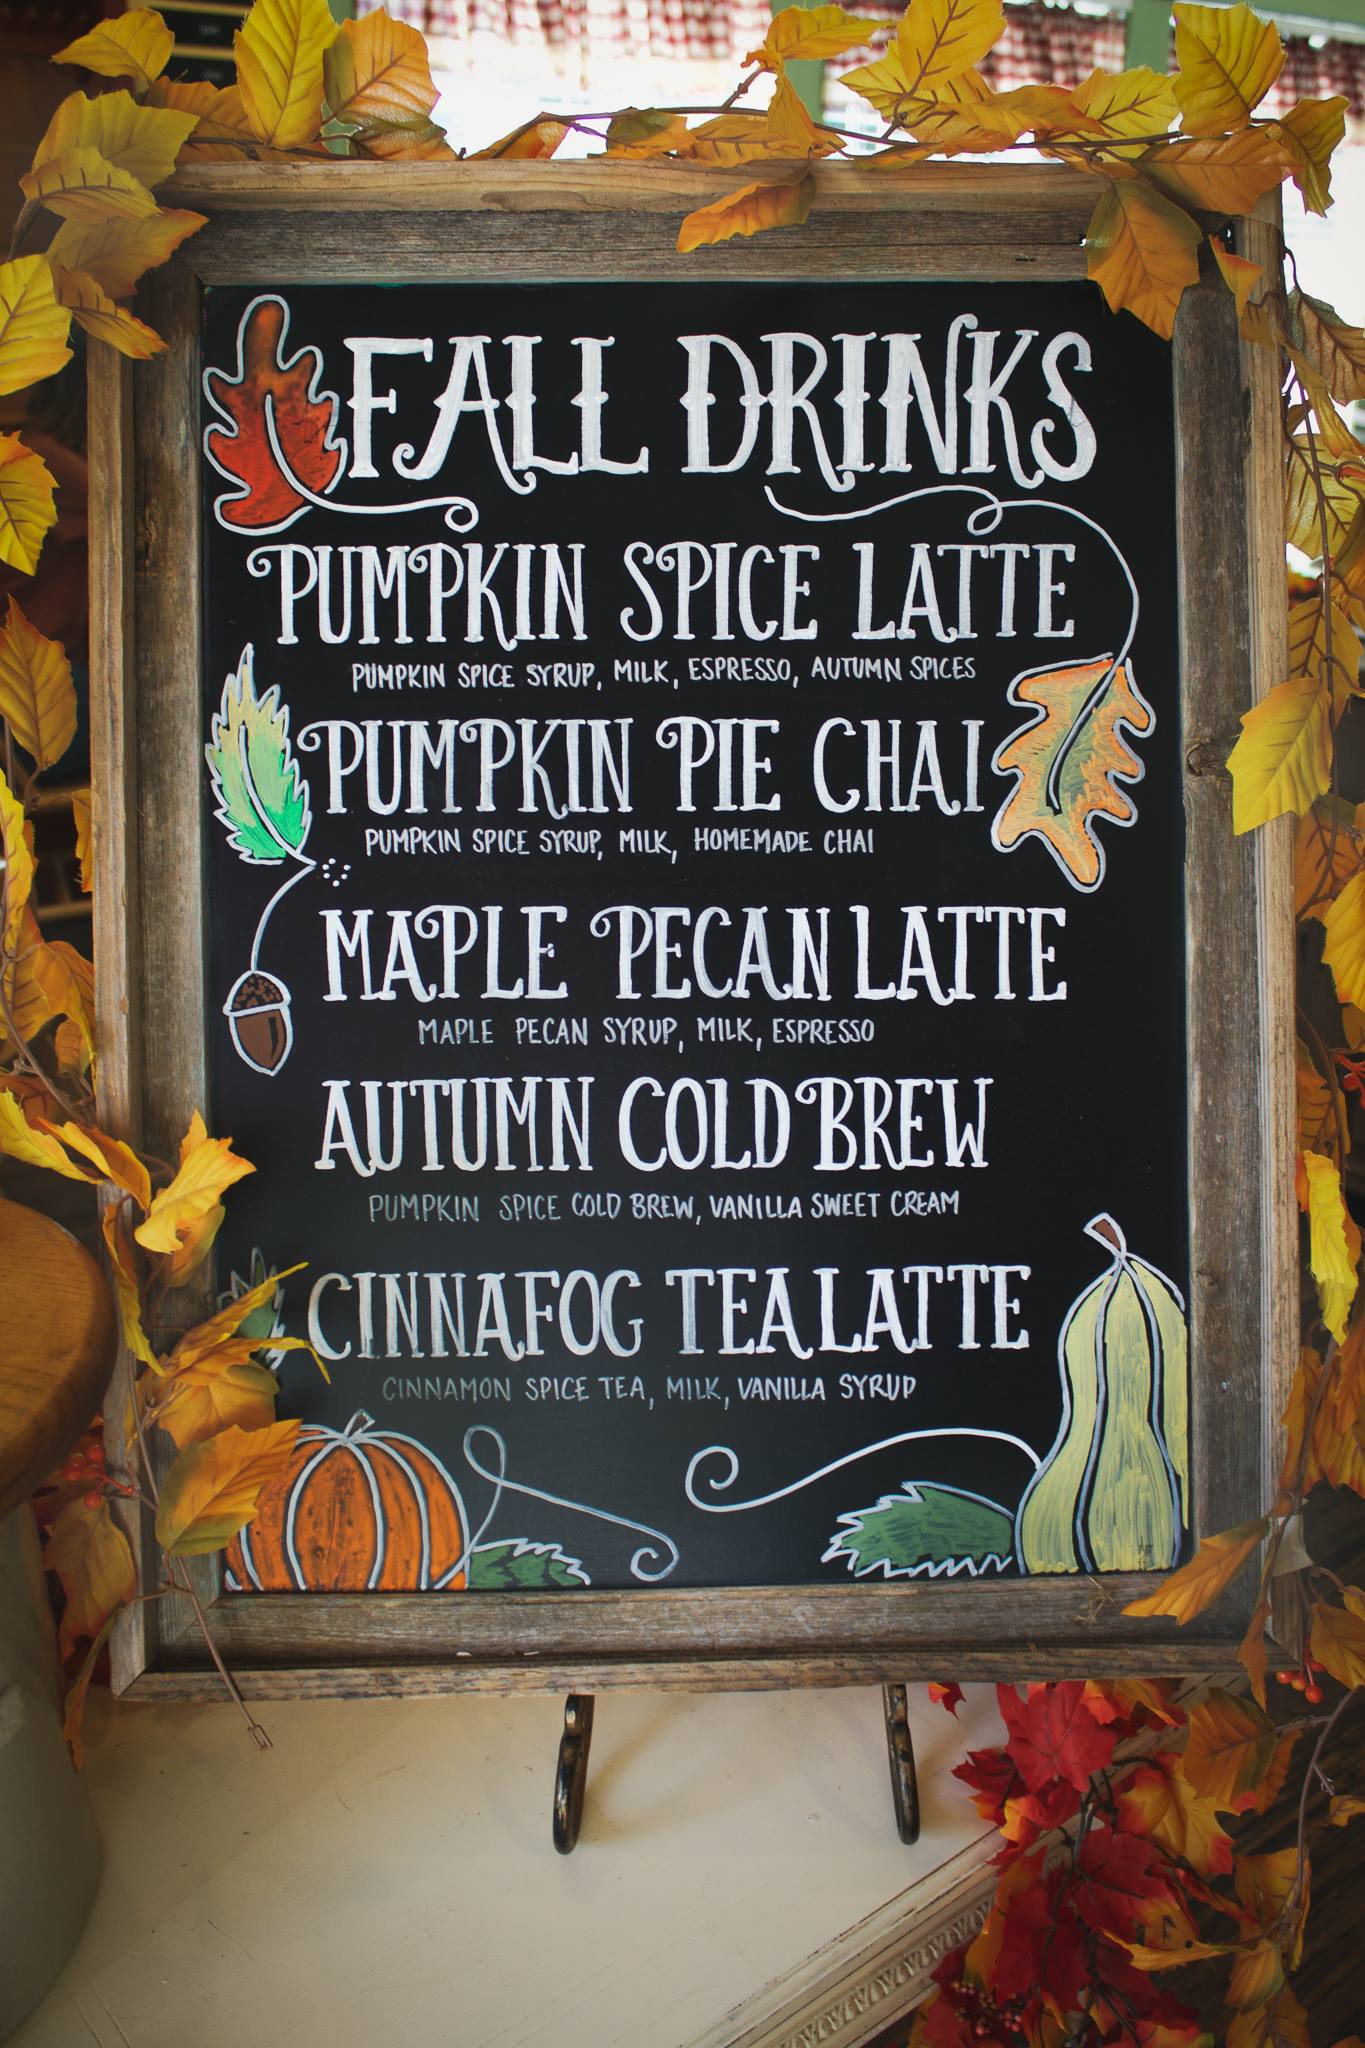 FALL DRINKS
PUMPKIN SPICE LATTE
PUMPKIN SPICE SYRUP, MILK, ESPRESSO, AUTUMN SPICES
PUMPKIN PIE CHAI
PUMPKIN SPICE SYRUP, MILK, HOMEMADE CHAI
MAPLE PECAN LATTE
MAPLE PECAN SYRUP, MILK, ESPRESSO
AUTUMN COLD BREW
PUMPKIN SPICE COLD BREW, VANILLA SWEET CREAM
CINNAFOG TEA LATTE
CINNAMON SPICE TEA, MILK, VANILLA SYRUP